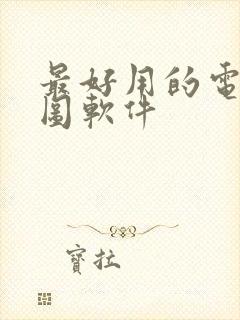 最好用的電
圖軟件
寶拉